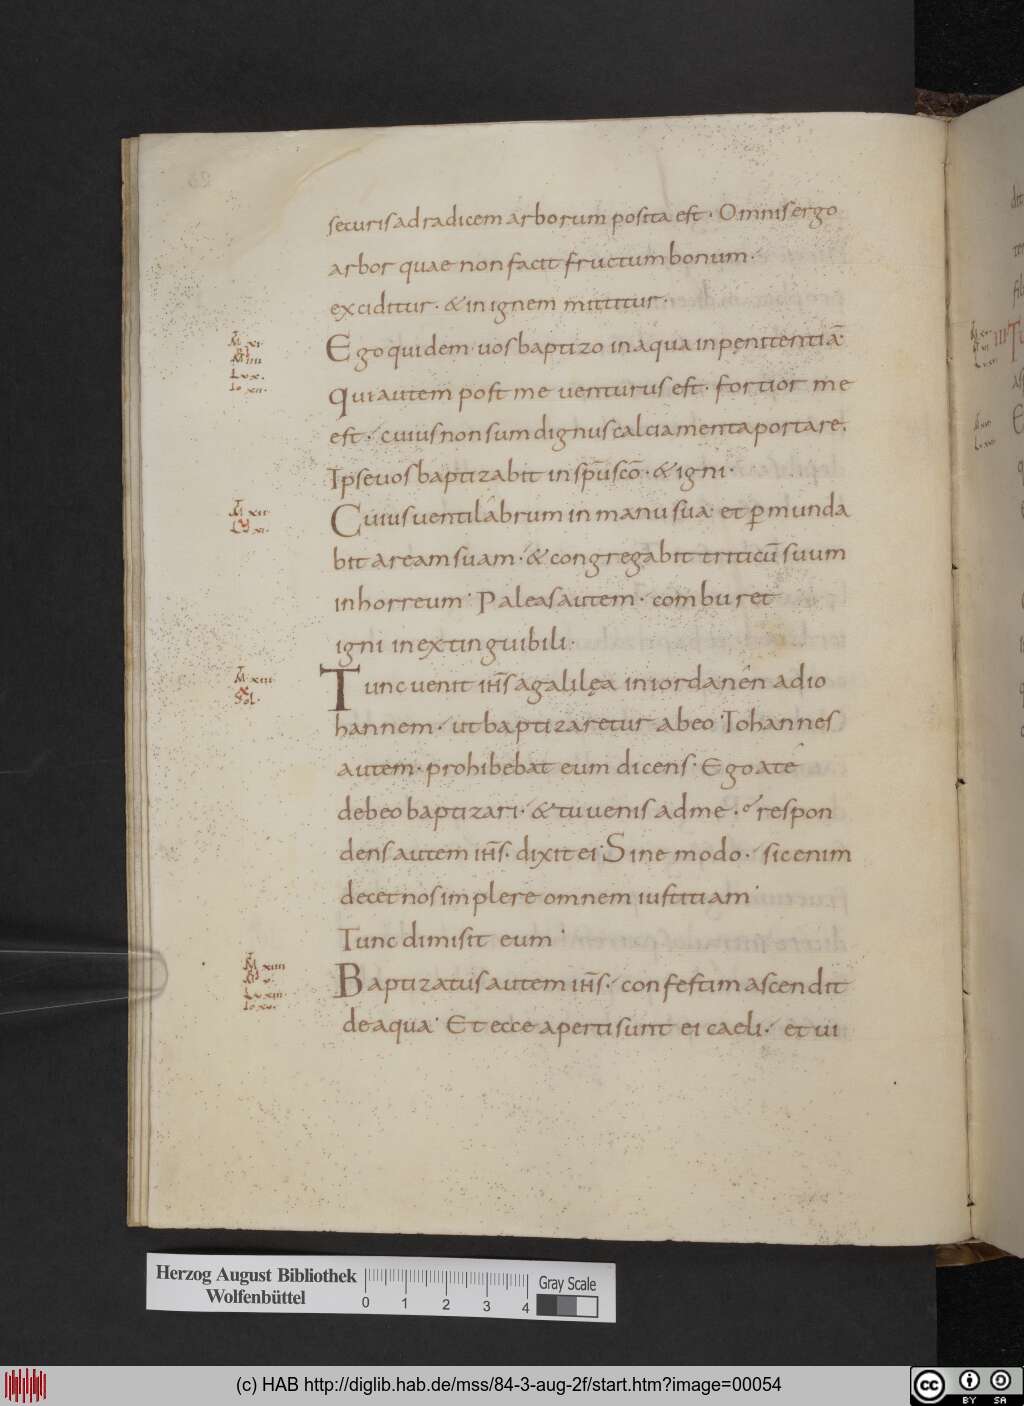 securis ad radicem arborum posita est · Omnis ergo
arbor quae non facit fructum bonum ·
exciditur · & in ignem mittitur ·
M xi
Ego quidem · uos baptizo in aqua in pęnitentiā ·
M iiii
L x ·
Io xii ·
Qui autem post me uenturus est · fortior me
est · cuius non sum dignus calciamenta portare ·
Ipse uos baptizabit in sp̄u sc̄o · & igni ·
M xii
Cuius uentilabrum in manu sua · et ꝑmunda
L xi ·
bit aream suam · & congregabit triticū suum
in horreum · Paleas autem · comburet
igni inextinguibili ·
M xiii
Tunc uenit ih̄s a galilęa in iordanen ad io
Sol ·
hannem · ut baptizaretur ab eo · Iohannes
autem · prohibebat eum dicens · Ego a te
debeo baptizari · & tu uenis ad me · respon
dens autem ih̄s · dixit ei · Sine modo · sic enim
decet nos implere omnem iustitiam ·
Tunc dimisit eum ·
M xiiii
Baptizatus autem ih̄s · confestim ascendit
M v ·
L xiii ·
Io xv ·
de aqua · Et ecce aperti sunt ei caeli · et ui
Herzog August Bibliothek
Wolfenbüttel
0 1 2 3 4
Gray Scale
(c) HAB http://diglib.hab.de/mss/84-3-aug-2f/start.htm?image=00054
cc BY SA